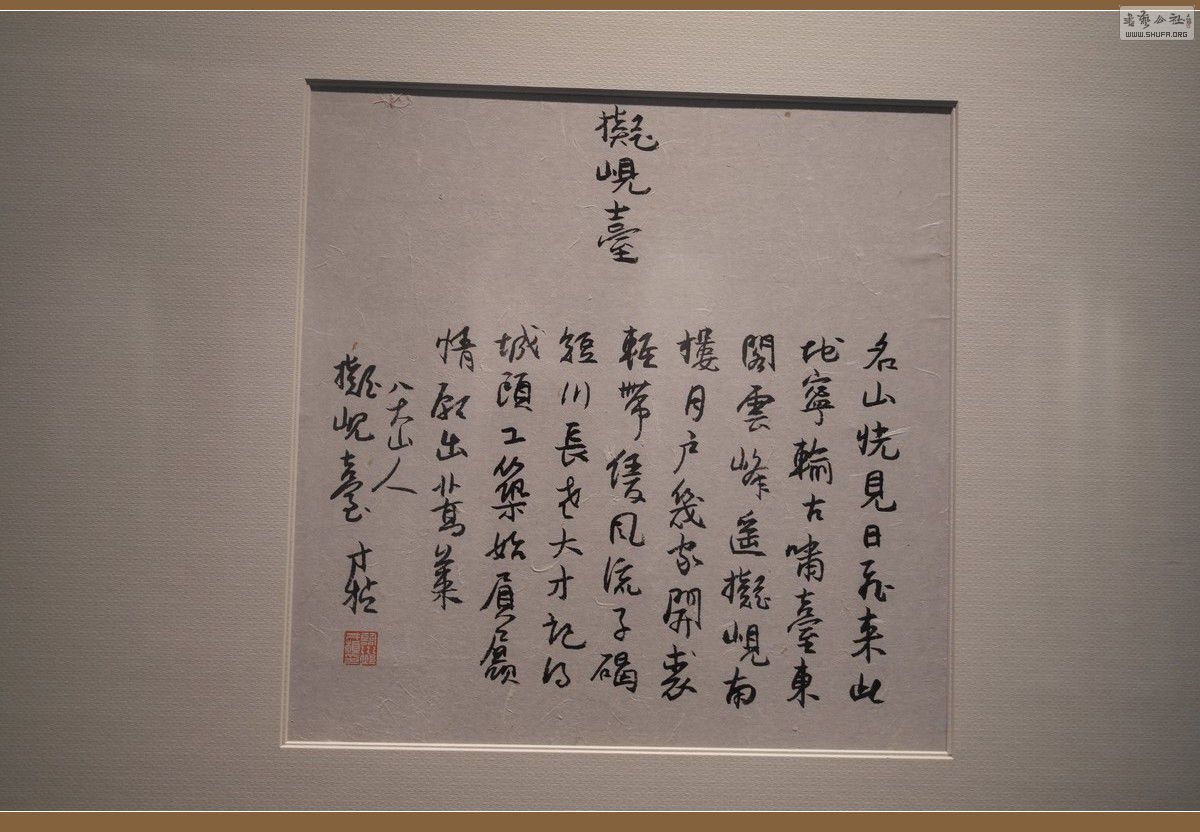 擬峴臺
名山恍見日飛來此
地寧輪古嘯臺東
閣雲峰遥擬峴南
樓月户幾家開裘
輕帶緩風流子碣
短川長老大才記得
城工築始
情願出蒿萊
八大山人
擬峴臺才
书艺公社
WWW.SHUFA.ORG